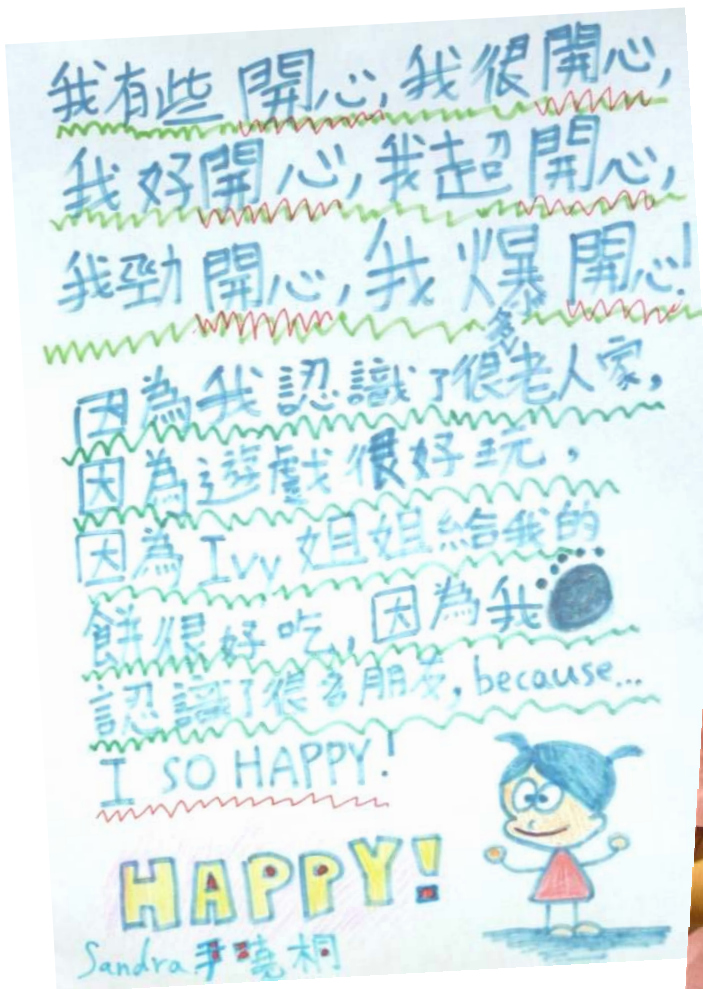 我有些開心,我很開心,
我好開心,我超開心,
我勁開心,我爆開心!
因為我認識了很多老人家,
因為遊戲很好玩,
因為Ivy姐姐給我的
餅很好吃,因為我
認識了很多朋友,because...
I SO HAPPY!
HAPPY!
Sandra 尹曉桐